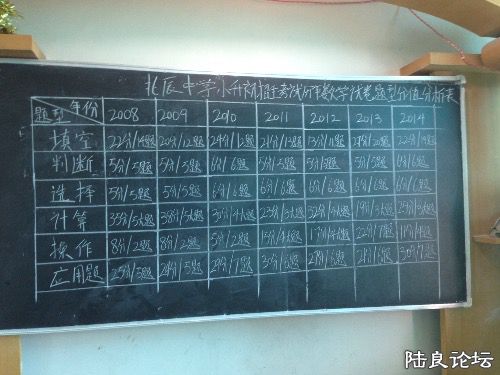 北辰中学小升初招生考试历年数学试卷题型分值分析表
题型 年份 2008 2009 2010 2011 2012 2013 2014
填空 22分/14题 20分/12题 24分/12题 21分/13题 13分/11题 21分/20题
判断 5分/5题 5分/5题 6分/6题 5分/5题 5分/5题 5分/5题 6分/6题
选择 5分/5题 5分/5题 6分/6题 6分/6题 6分/6题 6分/6题 6分/6题
计算 35分/5大题 38分/5大题 30分/4大题 23分/3大题 32分/3大题 19分/3大题
操作 8分/2题 8分/2题 5分/2题 15分/4大题 17分/4大题 22分/7题
应用题 25分/5题 24分/5题 29分/7题
陆良论坛